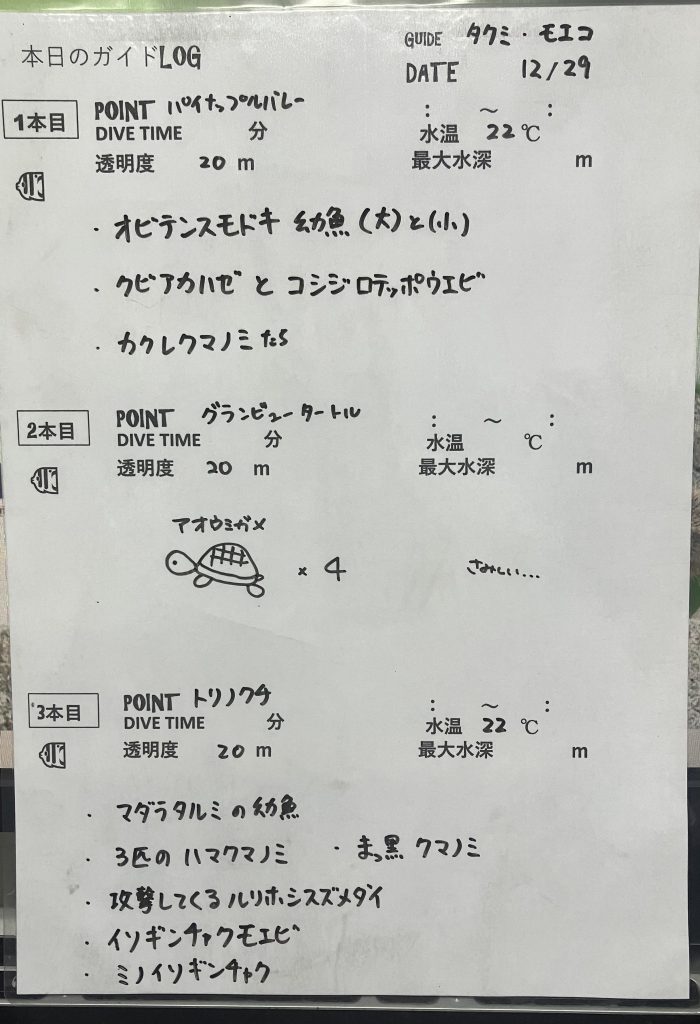 本日のガイドLOG
GUIDE タクミ・モエコ
DATE 12/29
1本目 POINT パイナップルバレー : ～ :
DIVE TIME 分 水温 22℃
透明度 20 m 最大水深 m
・オビテンスモドキ 幼魚(大)と(小)
・クビアカハゼ と コシジロテッポウエビ
・カクレクマノミたち
2本目 POINT グランビュータートル : ～ :
DIVE TIME 分 水温 ℃
透明度 20 m 最大水深 m
アオウミガメ
×4 さみしい...
3本目 POINT トリノクチ : ～ :
DIVE TIME 分 水温 22℃
透明度 20 m 最大水深 m
・マダラタルミの幼魚
・3匹のハマクマノミ ・まっ黒クマノミ
・攻撃してくるルリホシスズメダイ
・イソギンチャクモエビ
・ミノイソギンチャク